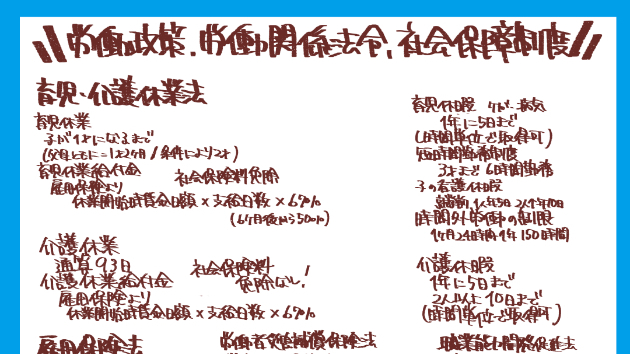 \\労働政策、労働関係法令、社会保障制度//
育児・介護休業法
育児休業
子が1才になるまで
(父母ともに=1才2ヶ月/条件により2才)
育児休業給付金 社会保険料保険
雇用保険より
休業開始時賃金日額×支給日数×67%
(6ヶ月後から50%)
介護休業
通算93日 社会保険料
介護休業給付金 保険なし!
雇用保険より
休業開始時賃金日額×支給日数×67%
雇用保険法
育児休暇 ケガ・病気
1年に5日まで
(時間単位で取得可)
短時間勤務制度
3才まで6時間勤務
子の看護休暇
1人年5日 2人年10日
時間外労働の制限
1ヶ月24時間 1年150時間
介護休暇
1年に5日まで
2人以上10日まで
(時間単位で取得可)